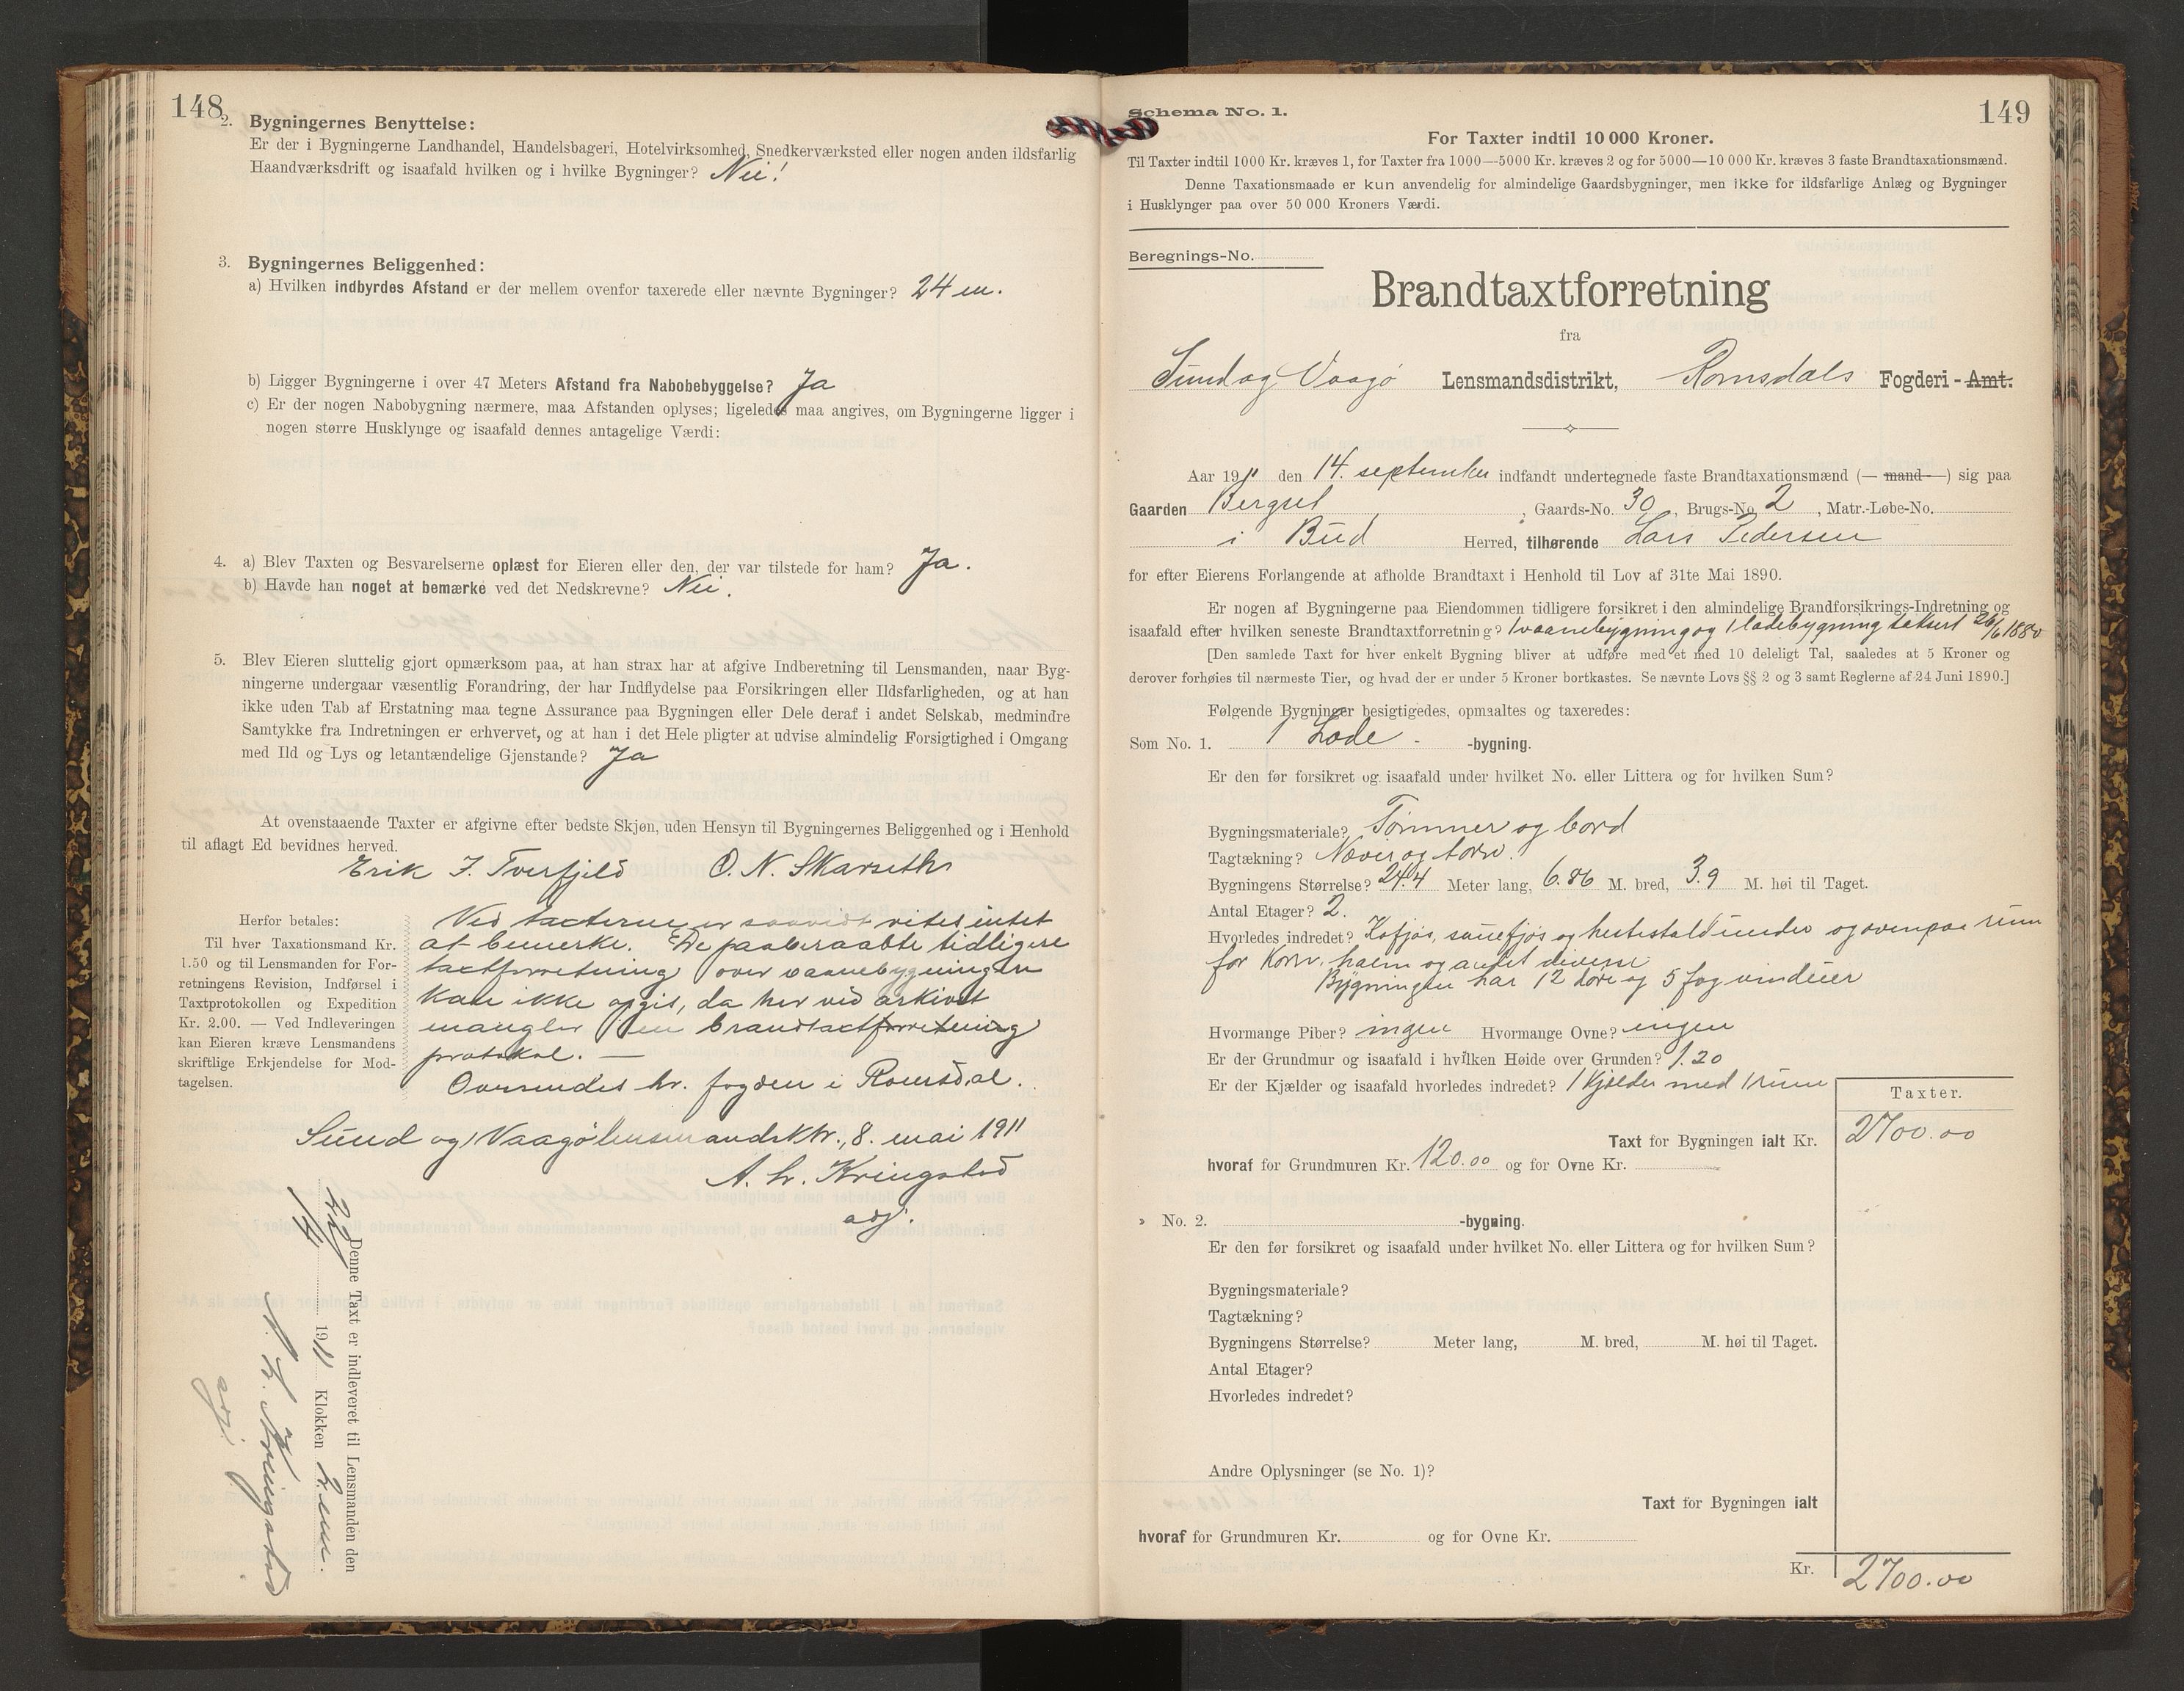 148
2. Bygningernes Benyttelse:
Er der i Bygningerne Landhandel, Handelsbageri, Hotelvirksomhed, Snedkerværksted eller nogen anden ildsfarlig
Haandværksdrift og isaafald hvilken og i hvilke Bygninger? Nei!
3. Bygningernes Beliggenhed:
a) Hvilken indbyrdes Afstand er der mellem ovenfor taxerede eller nævnte Bygninger? 24 m.
b) Ligger Bygningerne i over 47 Meters Afstand fra Nabobebyggelse? Ja
c) Er der nogen Nabobygning nærmere, maa Afstanden oplyses; ligeledes maa angives, om Bygningerne ligger i
nogen større Husklynge og isaafald dennes antagelige Værdi:
4. a) Blev Taxten og Besvarelserne oplæst for Eieren eller den, der var tilstede for ham? Ja.
b) Havde han noget at bemærke ved det Nedskrevne? Nei.
5. Blev Eieren sluttelig gjort opmærksom paa, at han strax har at afgive Indberetning til Lensmanden, naar Byg-
ningerne undergaar væsentlig Forandring, der har Indflydelse paa Forsikringen eller Ildsfarligheden, og at han
ikke uden Tab af Erstatning maa tegne Assurance paa Bygningen eller Dele deraf i andet Selskab, medmindre
Samtykke fra Indretningen er erhvervet, og at han i det Hele pligter at udvise almindelig Forsigtighed i Omgang
med Ild og Lys og letantændelige Gjenstande? Ja
At ovenstaaende Taxter er afgivne efter bedste Skjøn, uden Hensyn til Bygningernes Beliggenhed og i Henhold
til aflagt Ed bevidnes herved.
Erik J. Tverfjeld O. N. Skarseth
Herfor betales:
Til hver Taxationsmand Kr.
1.50 og til Lensmanden for For-
retningens Revision, Indførsel i
Taxtprotokollen og Expedition
Kr. 2.00. — Ved Indleveringen
kan Eieren kræve Lensmandens
skriftlige Erkjendelse for Mod-
tagelsen.
Ved taxterne er saavidt vites intet
at bemerke. De paaberaabte tidligere
taxtforretning over vaanebygningen
kan ikke opgis, da her ved arkivet
mangler en brandtaxtforretning
protokol. —
Oversendes hr. fogden i Romsdal.
Sund og Vaagø lensmandsktr., 8. mai 1911
A. Kringstad
adj.
Denne Taxt er indleveret til Lensmanden den
22/4 1911 Klokken
A. Kringstad
adj.
149
Schema No. 1.
For Taxter indtil 10 000 Kroner.
Til Taxter indtil 1000 Kr. kræves 1, for Taxter fra 1000—5000 Kr. kræves 2 og for 5000—10 000 Kr. kræves 3 faste Brandtaxationsmænd.
Denne Taxationsmaade er kun anvendelig for almindelige Gaardsbygninger, men ikke for ildsfarlige Anlæg og Bygninger
i Husklynger paa over 50 000 Kroners Værdi.
Beregnings-No.
Brandtaxtforretning
fra
Sund og Vaagø Lensmandsdistrikt, Romsdals Fogderi - Amt.
Aar 1911 den 14. september indfandt undertegnede faste Brandtaxationsmænd (— mand —) sig paa
Gaarden Bergset, Gaards-No. 30, Brugs-No. 2, Matr.-Løbe-No.
i Bud Herred, tilhørende Lars Pedersen
for efter Eierens Forlangende at afholde Brandtaxt i Henhold til Lov af 31te Mai 1890.
Er nogen af Bygningerne paa Eiendommen tidligere forsikret i den almindelige Brandforsikrings-Indretning og
isaafald efter hvilken seneste Brandtaxtforretning? 1 vaanebygning og 1 ladebygning taksert 26/6 1880
[Den samlede Taxt for hver enkelt Bygning bliver at udføre med et med 10 deleligt Tal, saaledes at 5 Kroner og
derover forhøies til nærmeste Tier, og hvad der er under 5 Kroner bortkastes. Se nævnte Lovs §§ 2 og 3 samt Reglerne af 24 Juni 1890.]
Følgende Bygninger besigtigedes, opmaaltes og taxeredes:
Som No. 1. 1 Lade - -bygning.
Er den før forsikret og isaafald under hvilket No. eller Littera og for hvilken Sum?
Bygningsmateriale? Tømmer og bord
Tagtækning? Næver og torv.
Bygningens Størrelse? 24.4 Meter lang, 6.86 M. bred, 3.9 M. høi til Taget.
Antal Etager? 2.
Hvorledes indredet? Kofjøs, sauefjøs og hestestald under og ovenpaa rum
for Korn, halm og andet diverse
Bygningen har 12 døre og 5 fag vinduer
Hvormange Piber? ingen Hvormange Ovne? ingen
Er der Grundmur og isaafald i hvilken Høide over Grunden? 1.20
Er der Kjælder og isaafald hvorledes indredet? 1 Kjelder med 1 rum
Taxter.
Taxt for Bygningen ialt Kr. 2700.00
hvoraf for Grundmuren Kr. 120.00 og for Ovne Kr.
» No. 2. -bygning.
Er den før forsikret og isaafald under hvilket No. eller Littera og for hvilken Sum?
Bygningsmateriale?
Tagtækning?
Bygningens Størrelse? Meter lang, M. bred, M. høi til Taget.
Antal Etager?
Hvorledes indredet?
Andre Oplysninger (se No. 1)?
Taxt for Bygningen ialt
hvoraf for Grundmuren Kr. og for Ovne Kr.
Kr. 2700.00